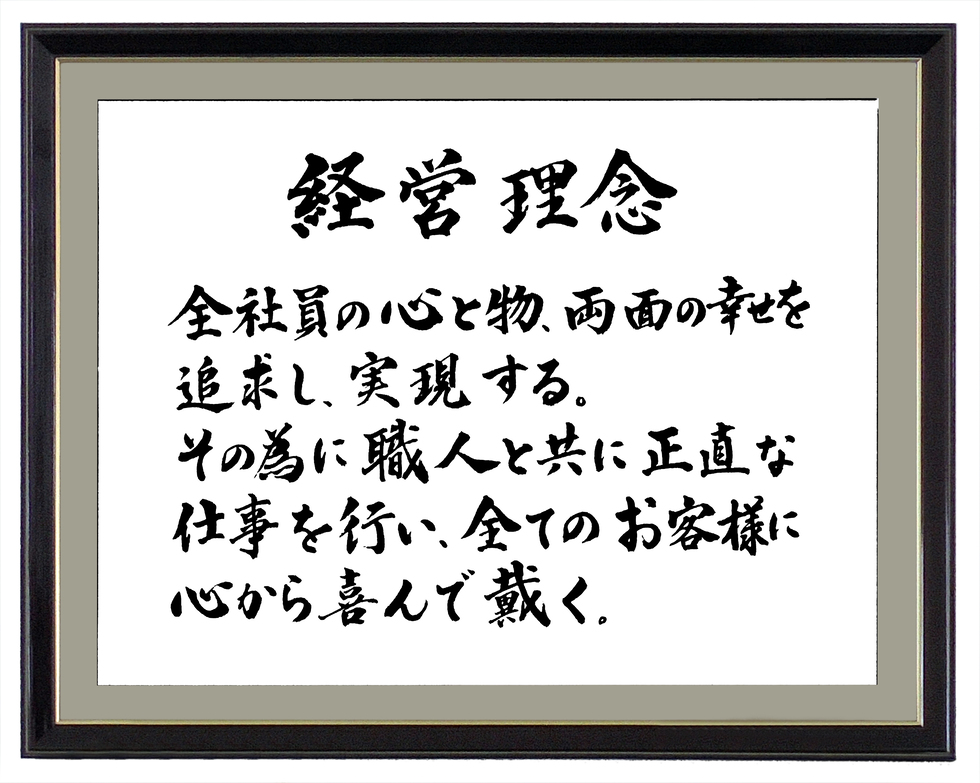 経営理念
全社員の心と物、両面の幸せを
追求し、実現する。
その為に職人と共に正直な
仕事を行い、全てのお客様に
心から喜んで戴く。